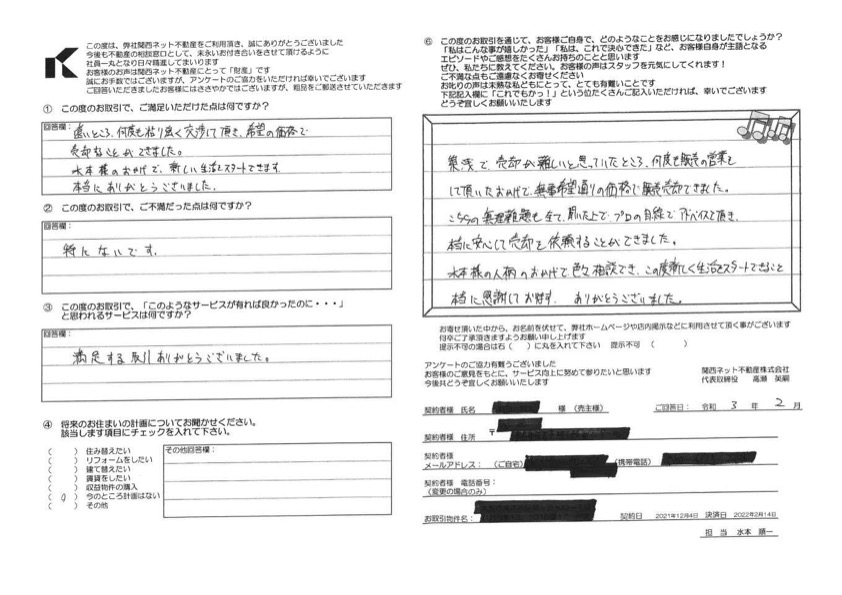 この度は、弊社関西ネット不動産をご利用頂き、誠にありがとうございました
今後も不動産の相談窓口として、末永いお付き合いをさせて頂けるように
社員一丸となり日々精進してまいります
お客様のお声は関西ネット不動産にとって「財産」です
誠にお手数ではございますが、アンケートのご協力をいただければ幸いでございます
ご回答いただきましたお客様にはささやかではございますが、粗品をご郵送させていただきます
① この度のお取引で、ご満足いただけた点は何ですか?
回答欄:
遠いところ、何度も粘り強く交渉して頂き、希望の価格で
売却することができました。
水本様のおかげで、新しい生活をスタートできます。
本当にありがとうございました。
② この度のお取引で、ご不満だった点は何ですか?
回答欄:
特にないです。
③ この度のお取引で、「このようなサービスが有れば良かったのに・・・」
と思われるサービスは何ですか?
回答欄:
満足する取引ありがとうございました。
④ 将来のお住まいの計画についてお聞かせください。
該当します項目にチェックを入れて下さい。
( ) 住み替えたい
( ) リフォームをしたい
( ) 建て替えたい
( ) 賃貸をしたい
( ) 収益物件の購入
( 0 ) 今のところ計画はない
( ) その他
その他回答欄:
⑥ この度のお取引を通じて、お客様ご自身で、どのようなことをお感じになりましたでしょうか?
「私はこんな事が嬉しかった」「私は、これで決心できた」など、お客様自身が主語となる
エピソードやご感想をたくさんお持ちのことと思います
ぜひ、私たちに教えてください。お客様の声はスタッフを元気にしてくれます!
ご不満な点もご遠慮なくお寄せください
お叱りの声は未熟な私どもにとって、とても有難いことです
下記記入欄に「これでもかっ!」という位たくさんご記入いただければ、幸いでございます
どうぞ宜しくお願いいたします
築浅で、売却が難しいと思っていたところ、何度も販売の営業を
して頂いたおかげで、無事希望通りの価格で販売売却できました。
こちらの無理難題も全て、聞いた上で、プロの目線でアドバイスして頂き、
本当に安心して売却を依頼することができました。
水本様の人柄のおかげで、色々相談でき、この度新しく生活をスタートできること
本当に感謝しております。 ありがとうございました。
お寄せ頂いた中から、お名前を伏せて、弊社ホームページや店内掲示などに利用させて頂く事がございます
何卒ご了承頂きますようお願い申し上げます
提示不可の場合は右( )に丸を入れて下さい 提示不可 ( )
アンケートのご協力有難うございました
お客様のご意見をもとに、サービス向上に努めて参りたいと思います
今後共どうぞ宜しくお願いいたします
関西ネット不動産株式会社
代表取締役 高瀬 英嗣
契約者様 氏名 様 (売主様) ご回答日: 令和 3 年 2 月
契約者様 住所 〒
契約者様
メールアドレス: (ご自宅) (携帯電話)
契約者様 電話番号:
(変更の場合のみ)
お取引物件名: 契約日 2021年12月4日 決済日 2022年2月14日
担 当 水本 順一